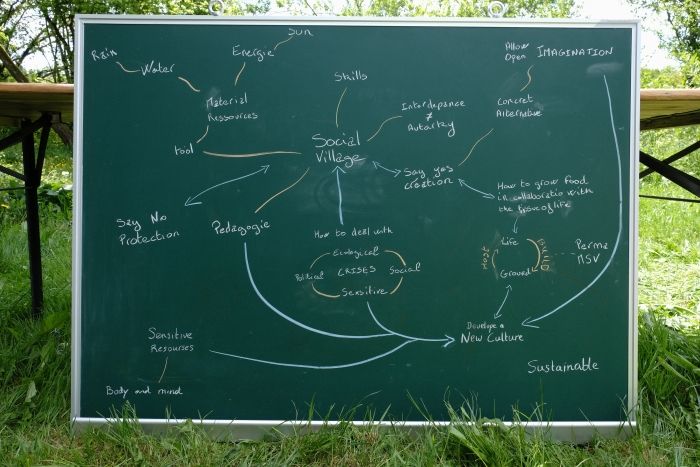 Sun
Rain
Water
Energie
Allow
Open
IMAGINATION
Skills
Material
Ressources
Interdepance
≠
Autarkey
Concret
Alternative
tool
Social
Village
Say yes
creation
How to grow food
in collaboratio with
the tissue of life
Say No
Protection
Pedagogie
How to deal with
Ecological
Political
CRISES
Social
Sensitive
Life
BUILD
Ground
Perma
MSV
Develope a
New Culture
Sensitive
Resourses
Body and mind
Sustainable